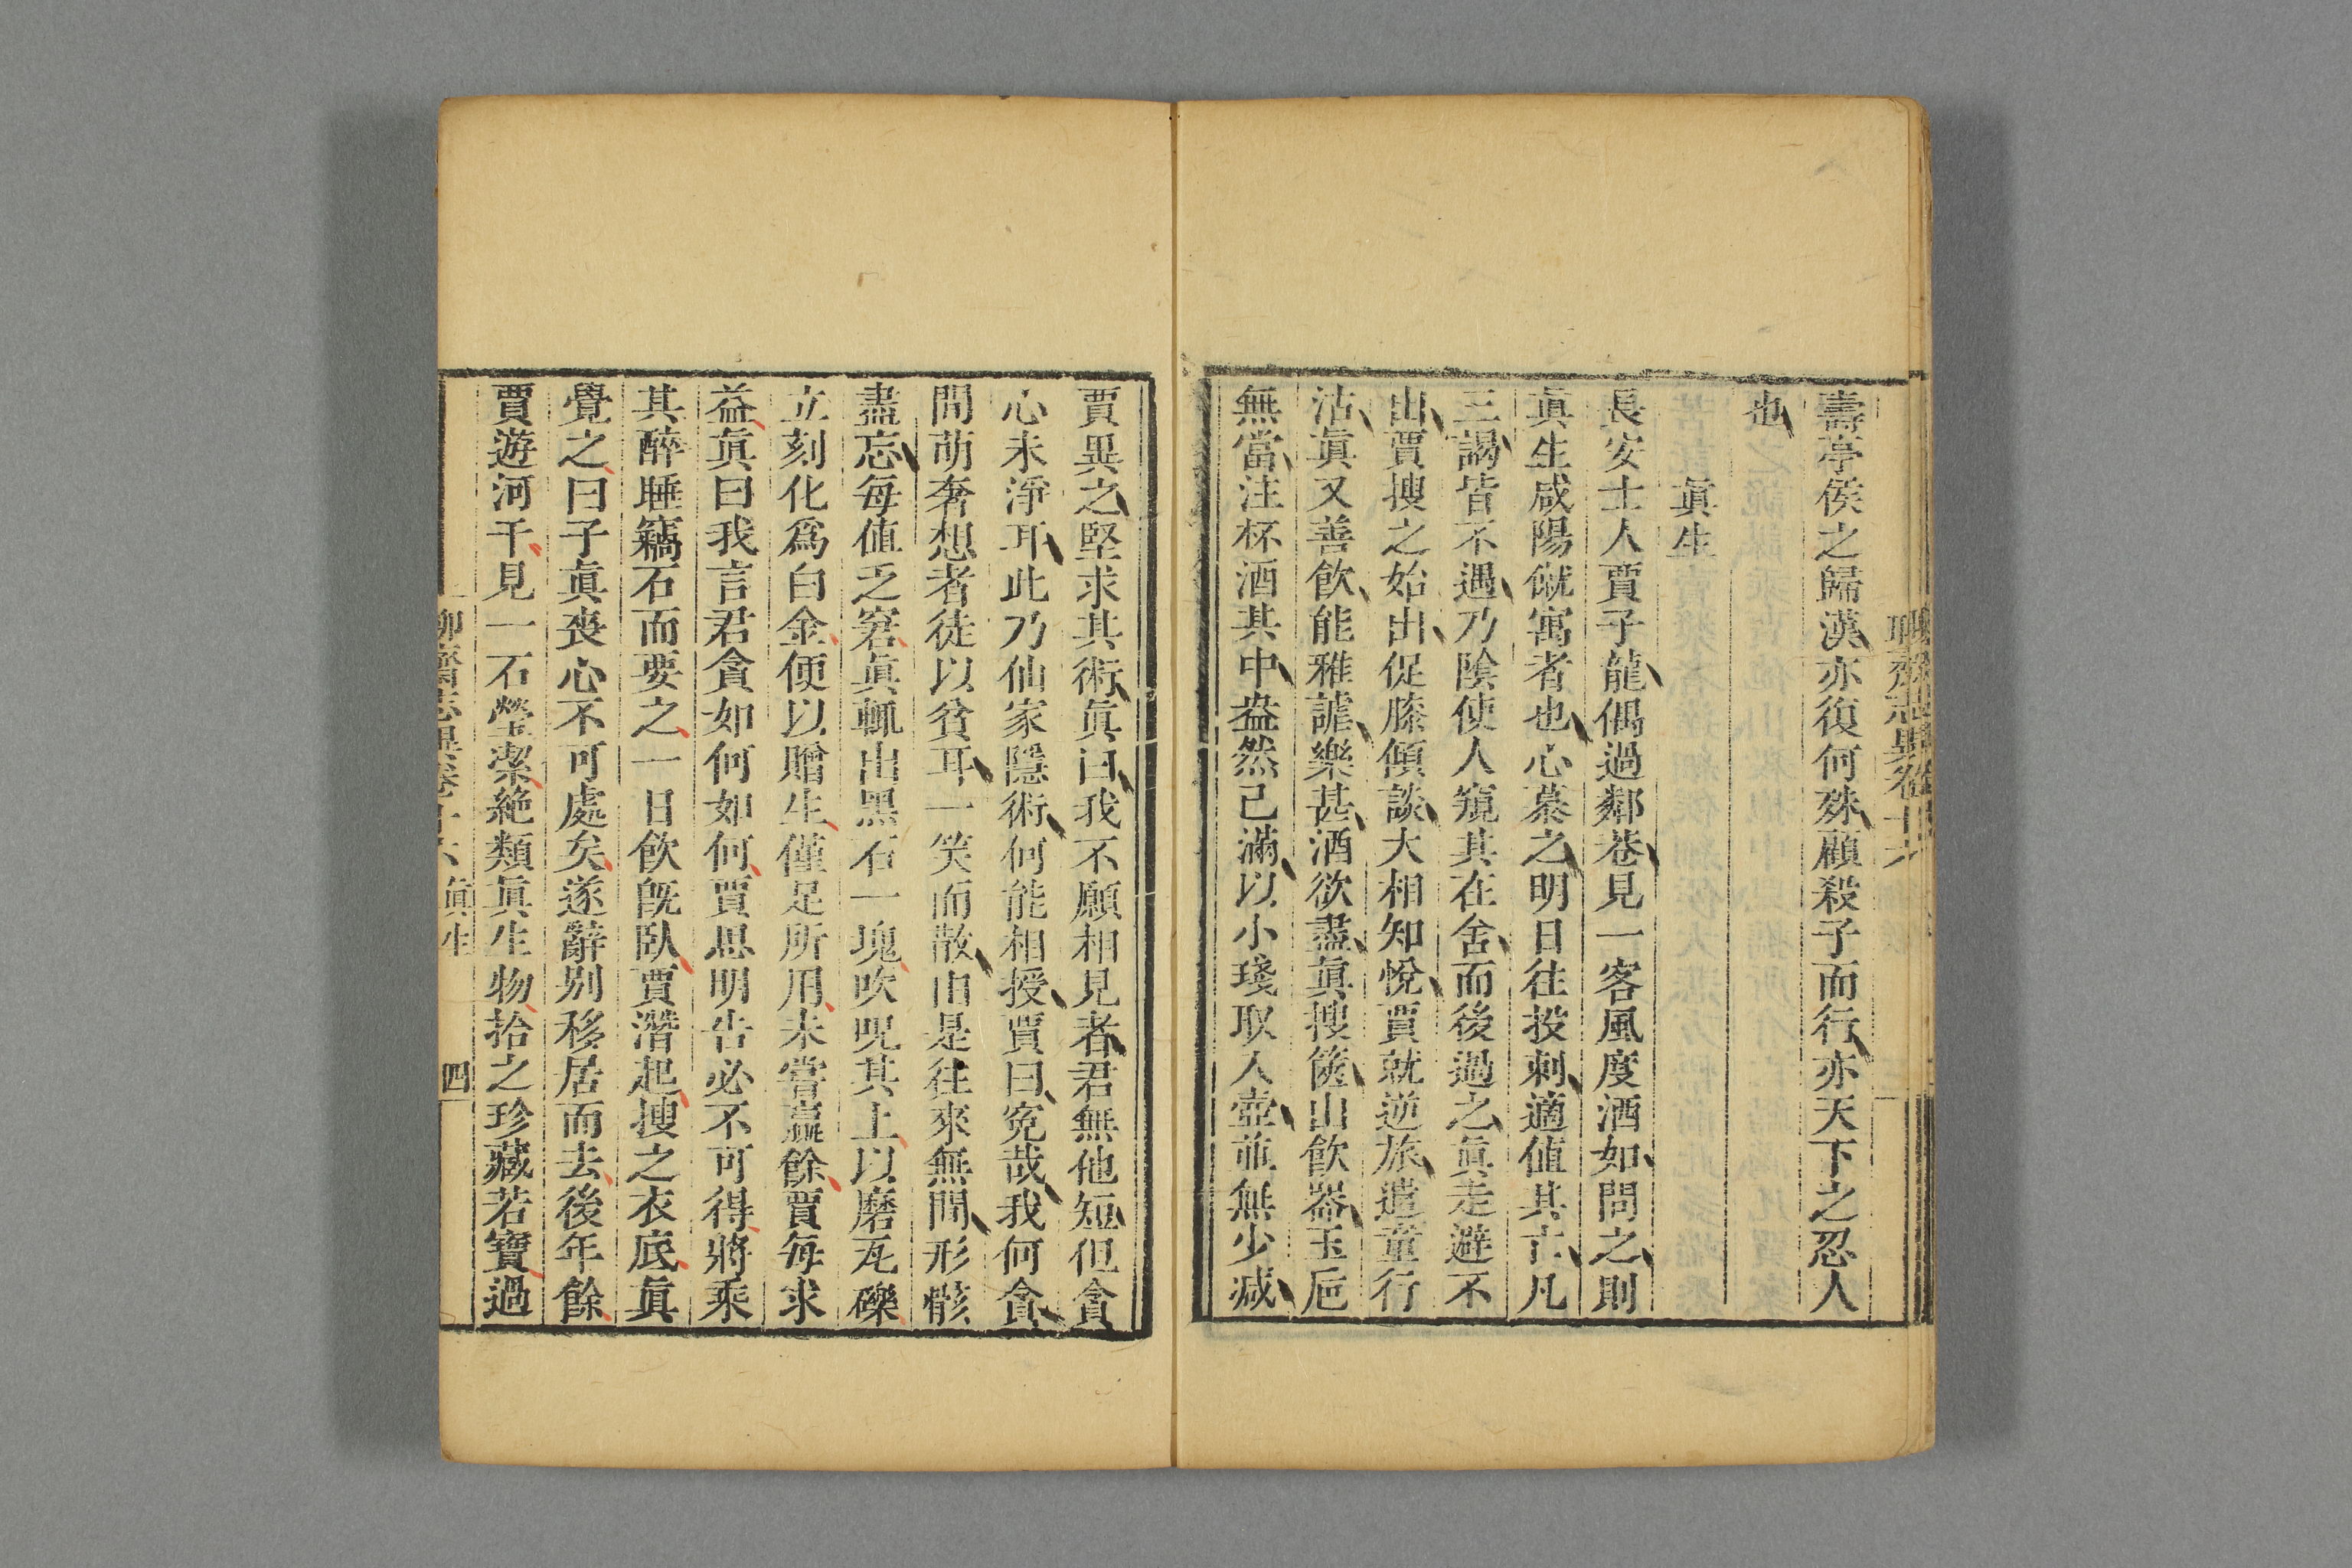 聊齋志異卷十六
壽亭侯之歸漢亦復何殊顧殺子而行亦天下之忍人
也
眞生
長安士人賈子龍偶過鄰巷見一客風度洒如問之則
眞生咸陽僦寓者也心慕之明日往投刺適值其亡凡
三謁皆不遇乃陰使人窺其在舍而後過之眞走避不
出賈搜之始出促膝傾談大相知悅賈就逆旅遣童行
沽眞又善飲能雅謔樂甚酒欲盡眞搜篋出飲器玉巵
無當注杯酒其中盎然已滿以小琖取入壺並無少減
賈異之堅求其術眞曰我不願相見者君無他短但貪
心未淨耳此乃仙家隱術何能相授賈曰寃哉我何貪
間萌奢想者徒以貧耳一笑而散由是往來無間形骸
盡忘每值乏窘眞輒出黑石一塊吹呪其上以磨瓦礫
立刻化爲白金便以贈生僅足所用未嘗贏餘賈每求
益眞曰我言君貪如何如何賈思明告必不可得將乘
其醉睡竊石而要之一日飲旣臥賈潛起搜之衣底眞
覺之曰子眞喪心不可處矣遂辭別移居而去後年餘
賈遊河干見一石瑩潔絶類眞生物拾之珍藏若寶過
聊齋志異卷十六 眞生 四